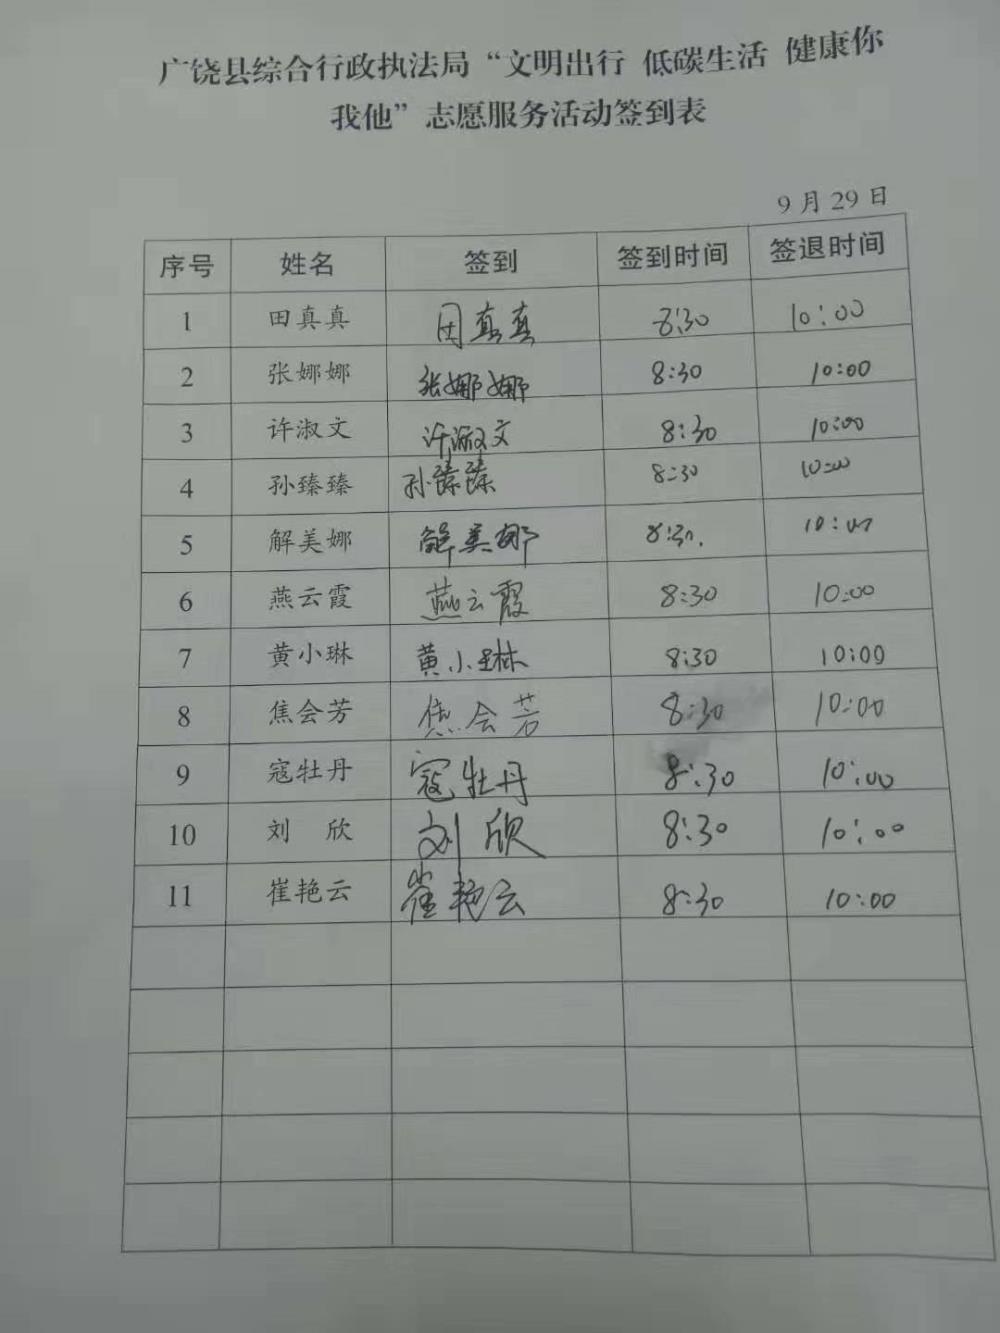 广饶县综合行政执法局“文明出行 低碳生活 健康你
我他”志愿服务活动签到表
9月29日
序号 姓名 签到 签到时间 签退时间
1 田真真 田真真 8:30 10:00
2 张娜娜 张娜娜 8:30 10:00
3 许淑文 许淑文 8:30 10:00
4 孙臻臻 孙臻臻 8:30 10:00
5 解美娜 解美娜 8:30. 10:00
6 燕云霞 燕云霞 8:30 10:00
7 黄小琳 黄小琳 8:30 10:00
8 焦会芳 焦会芳 8:30 10:00
9 寇牡丹 寇牡丹 8:30 10:00
10 刘 欣 刘欣 8:30 10:00
11 崔艳云 崔艳云 8:30 10:00